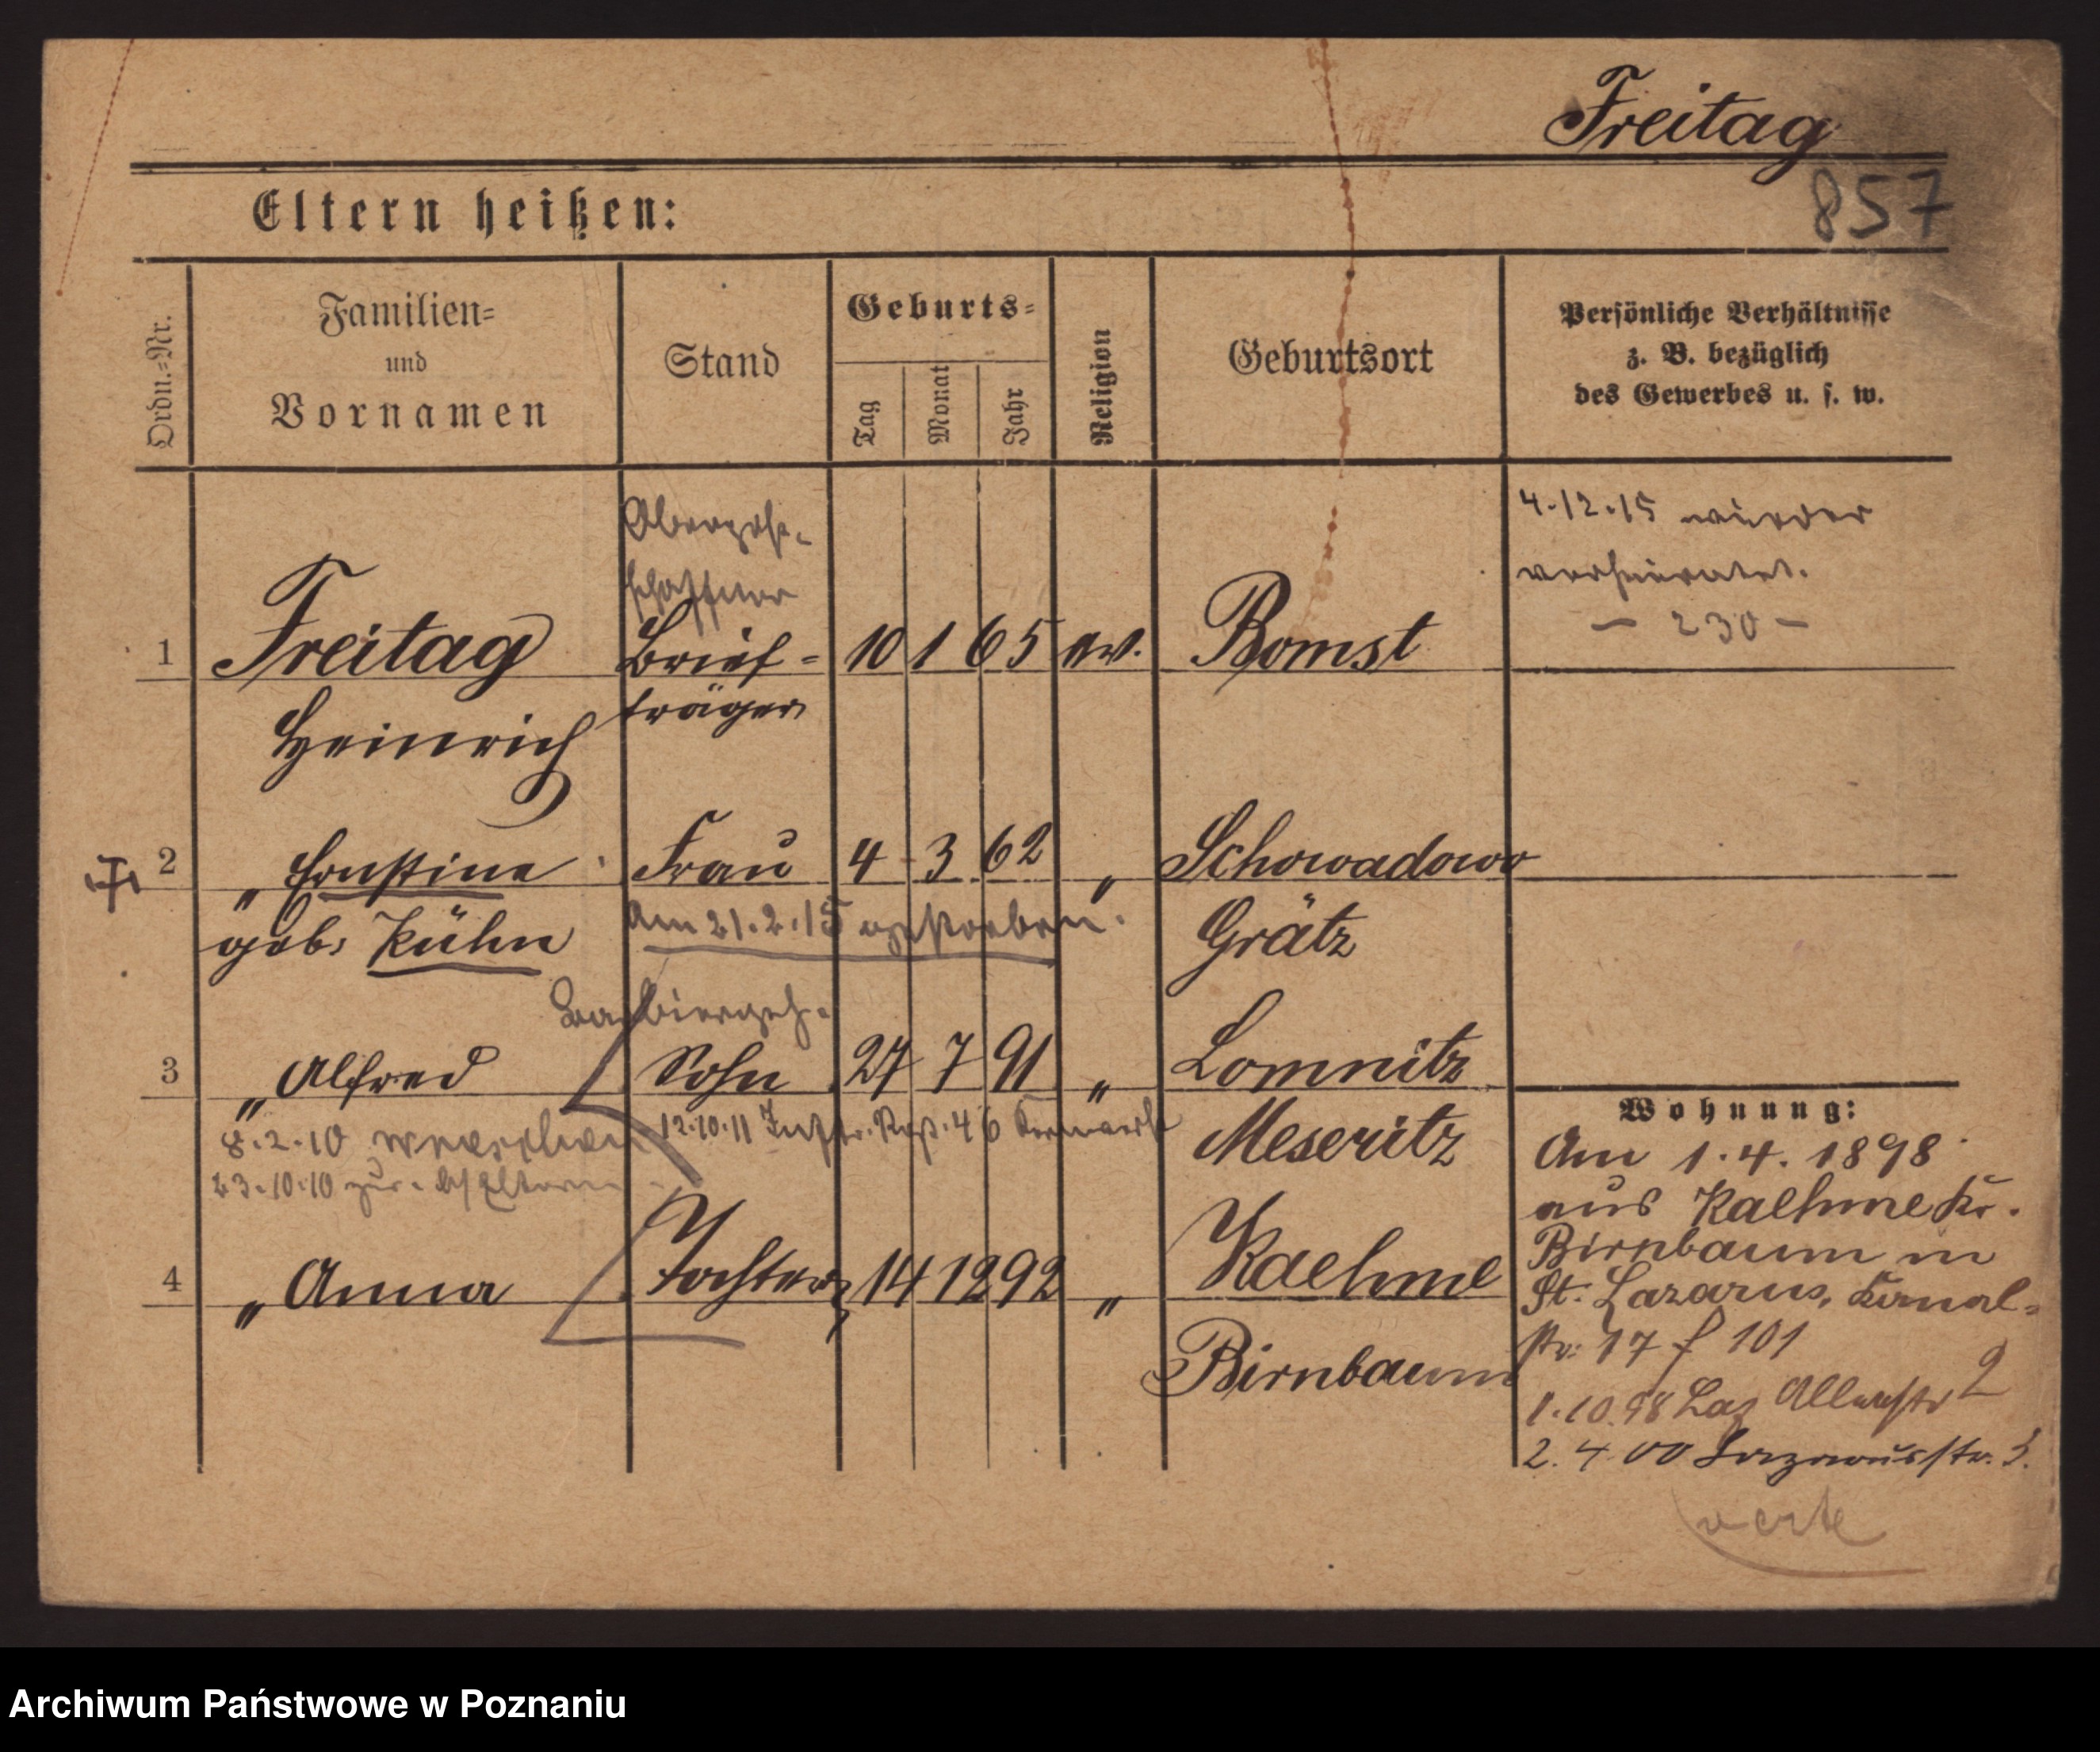 Freitag
857
Eltern heißen:
Ordn.-Nr.
Familien-
und
Vornamen
Stand
Geburts-
Tag
Monat
Jahr
Religion
Geburtsort
Persönliche Verhältnisse
z. B. bezüglich
des Gewerbes u. s. w.
Oberpost-
schaffner
4.12.15 wieder
verheiratet.
- 230 -
1 Freitag Brief- 10 1 65 ev. Bomst
träger
Heinrich
2 " Ernstine Frau 4 3 62 " Schowadowo
geb. Kühn Am 21.2.15 gestorben. Grätz
Barbiergeh.
3 " Alfred Sohn 27 7 91 " Lomnitz
8.2.10
12.10.11 Inftr. Regt. 46
Meseritz
23.10.10 zur. Eltern
4 " Anna Tochter 14 12 92 " Kaehme
Birnbaum
Wohnung:
Am 1.4.1898
aus Kaehme Kr.
Birnbaum in
St. Lazarus, Kanal-
str. 17 f 101
1.10.98 Laz 2
2. 4 00 Lazarusstr. 3.
verte
Archiwum Państwowe w Poznaniu